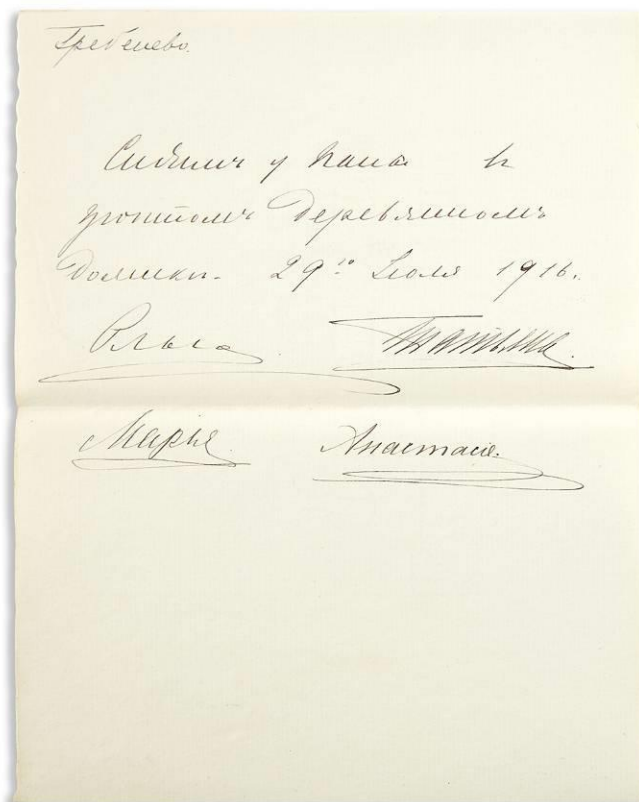 Гребенево.
Сидимъ у папа въ
уютномъ деревянномъ
домикѣ. 29го Іюля 1916.
Ольга Татьяна.
Марія Анастасія.